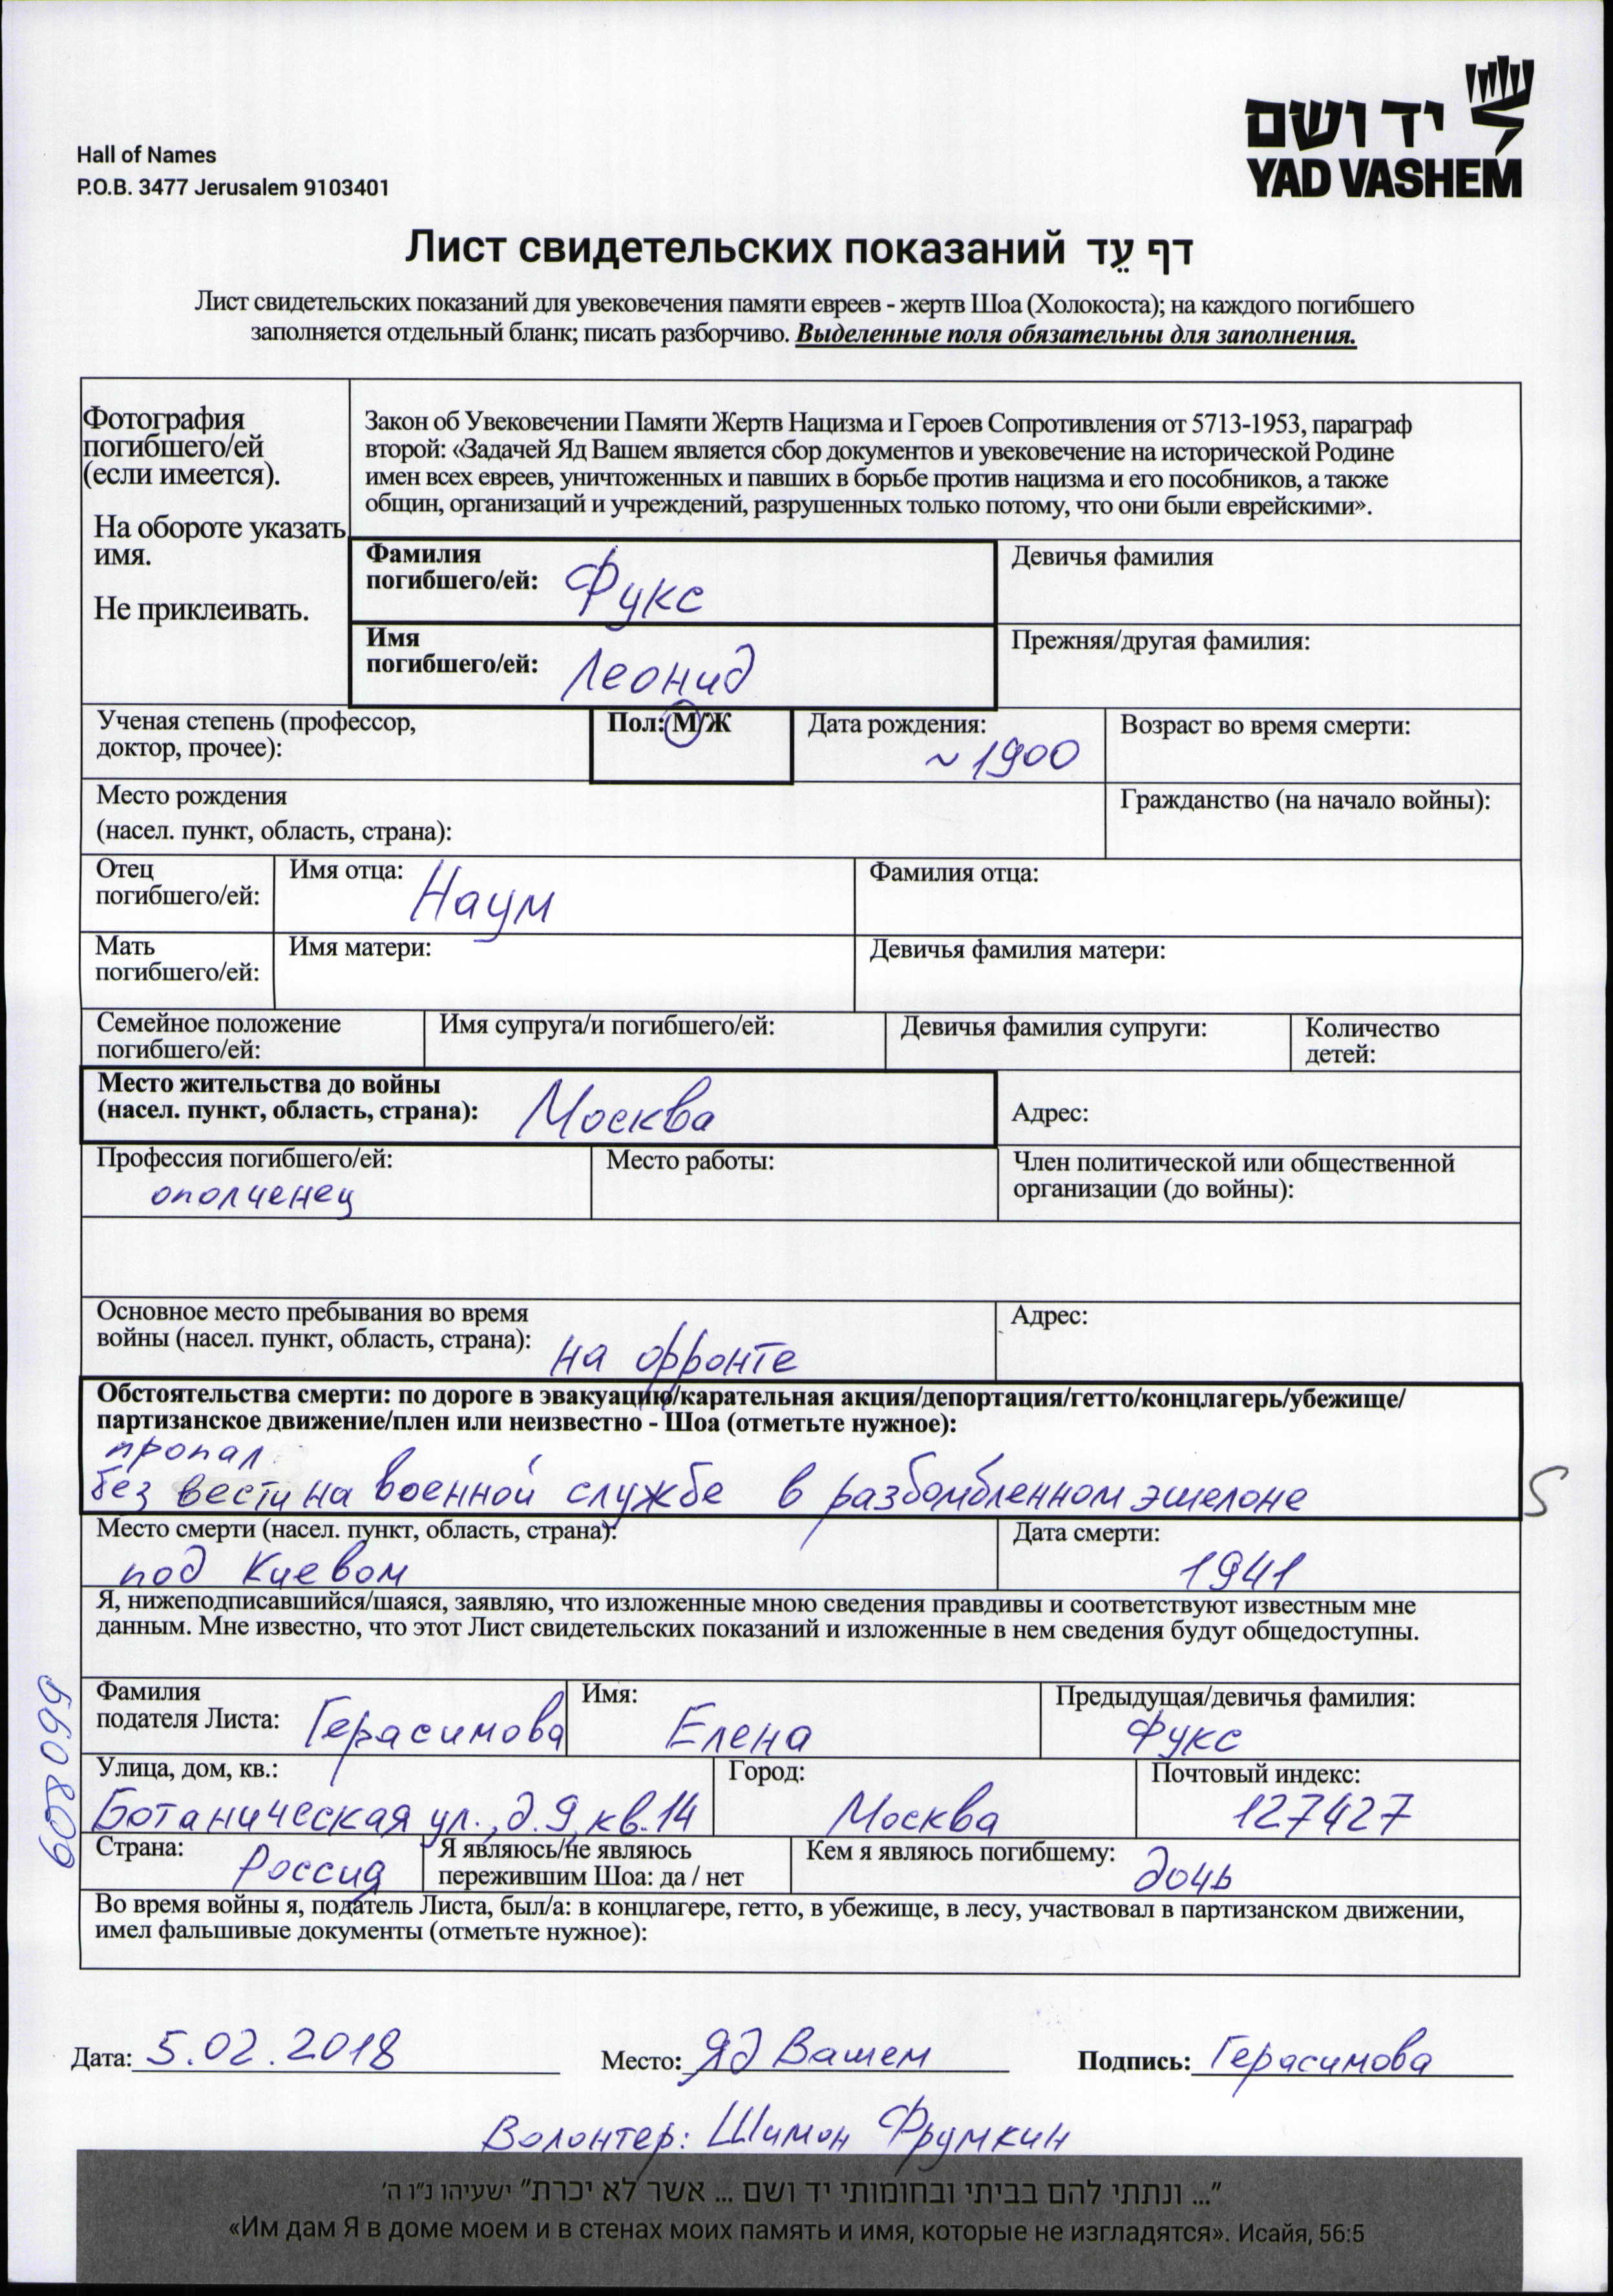 יד ושם
YAD VASHEM
Hall of Names
P.O.B. 3477 Jerusalem 9103401
Лист свидетельских показаний דף עֵד
Лист свидетельских показаний для увековечения памяти евреев - жертв Шоа (Холокоста); на каждого погибшего
заполняется отдельный бланк; писать разборчиво. Выделенные поля обязательны для заполнения.
Фотография
погибшего/ей
(если имеется).
На обороте указать
имя.
Не приклеивать.
Закон об Увековечении Памяти Жертв Нацизма и Героев Сопротивления от 5713-1953, параграф
второй: «Задачей Яд Вашем является сбор документов и увековечение на исторической Родине
имен всех евреев, уничтоженных и павших в борьбе против нацизма и его пособников, а также
общин, организаций и учреждений, разрушенных только потому, что они были еврейскими».
Фамилия
погибшего/ей: Фукс
Девичья фамилия
Имя
погибшего/ей: Леонид
Прежняя/другая фамилия:
Ученая степень (профессор,
доктор, прочее):
Пол: М/Ж
Дата рождения:
~ 1900
Возраст во время смерти:
Место рождения
(насел. пункт, область, страна):
Гражданство (на начало войны):
Отец
погибшего/ей:
Имя отца: Наум
Фамилия отца:
Мать
погибшего/ей:
Имя матери:
Девичья фамилия матери:
Семейное положение
погибшего/ей:
Имя супруга/и погибшего/ей:
Девичья фамилия супруги:
Количество
детей:
Место жительства до войны
(насел. пункт, область, страна): Москва
Адрес:
Профессия погибшего/ей:
ополченец
Место работы:
Член политической или общественной
организации (до войны):
Основное место пребывания во время
войны (насел. пункт, область, страна): на фронте
Адрес:
Обстоятельства смерти: по дороге в эвакуацию/карательная акция/депортация/гетто/концлагерь/убежище/
партизанское движение/плен или неизвестно - Шоа (отметьте нужное):
пропал
без вести на военной службе в разбомбленном эшелоне
S
Место смерти (насел. пункт, область, страна):
под Киевом
Дата смерти:
1941
Я, нижеподписавшийся/шаяся, заявляю, что изложенные мною сведения правдивы и соответствуют известным мне
данным. Мне известно, что этот Лист свидетельских показаний и изложенные в нем сведения будут общедоступны.
608099
Фамилия
подателя Листа: Герасимова
Имя:
Елена
Предыдущая/девичья фамилия:
Фукс
Улица, дом, кв.:
Ботаническая ул., д.9, кв.14
Город:
Москва
Почтовый индекс:
127427
Страна: Россия
Я являюсь/не являюсь
пережившим Шоа: да / нет
Кем я являюсь погибшему:
дочь
Во время войны я, податель Листа, был/а: в концлагере, гетто, в убежище, в лесу, участвовал в партизанском движении,
имел фальшивые документы (отметьте нужное):
Дата: 5.02.2018 Место: Яд Вашем Подпись: Герасимова
Волонтер: Шимон Фрумкин
"... ונתתי להם בביתי ובחומותי יד ושם ... אשר לא יכרת" ישעיהו נ"ו ה'
«Им дам Я в доме моем и в стенах моих память и имя, которые не изгладятся». Исайя, 56:5